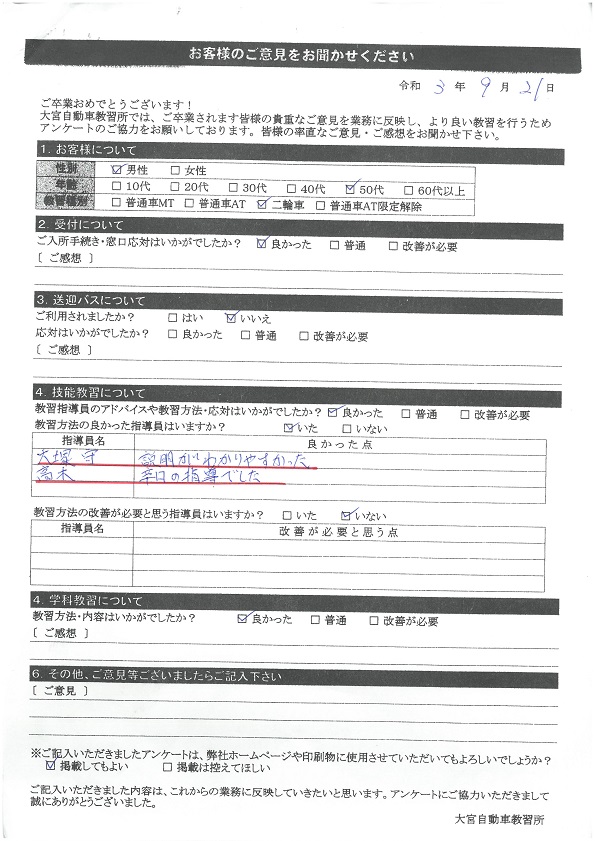 お客様のご意見をお聞かせください
令和 3 年 9 月 21 日
ご卒業おめでとうございます！
大宮自動車教習所では、ご卒業されます皆様の貴重なご意見を業務に反映し、より良い教習を行うため
アンケートのご協力をお願いしております。皆様の率直なご意見・ご感想をお聞かせ下さい。
1. お客様について
性別 ☑男性 □女性
年齢 □10代 □20代 □30代 □40代 ☑50代 □60代以上
教習種別 □普通車MT □普通車AT ☑二輪車 □普通車AT限定解除
2. 受付について
ご入所手続き・窓口応対はいかがでしたか？ ☑良かった □普通 □改善が必要
〔 ご感想 〕
3. 送迎バスについて
ご利用されましたか？ □はい ☑いいえ
応対はいかがでしたか？ □良かった □普通 □改善が必要
〔 ご感想 〕
4. 技能教習について
教習指導員のアドバイスや教習方法・応対はいかがでしたか？ ☑良かった □普通 □改善が必要
教習方法の良かった指導員はいますか？ ☑いた □いない
指導員名 良かった点
大塚 守 説明がわかりやすかった
高木 辛口の指導でした
教習方法の改善が必要と思う指導員はいますか？ □いた ☑いない
指導員名 改善が必要と思う点
4. 学科教習について
教習方法・内容はいかがでしたか？ ☑良かった □普通 □改善が必要
〔 ご感想 〕
6. その他、ご意見等ございましたらご記入下さい
〔 ご意見 〕
※ご記入いただきましたアンケートは、弊社ホームページや印刷物に使用させていただいてもよろしいでしょうか？
☑掲載してもよい □掲載は控えてほしい
ご記入いただきました内容は、これからの業務に反映していきたいと思います。アンケートにご協力いただきまして
誠にありがとうございました。
大宮自動車教習所